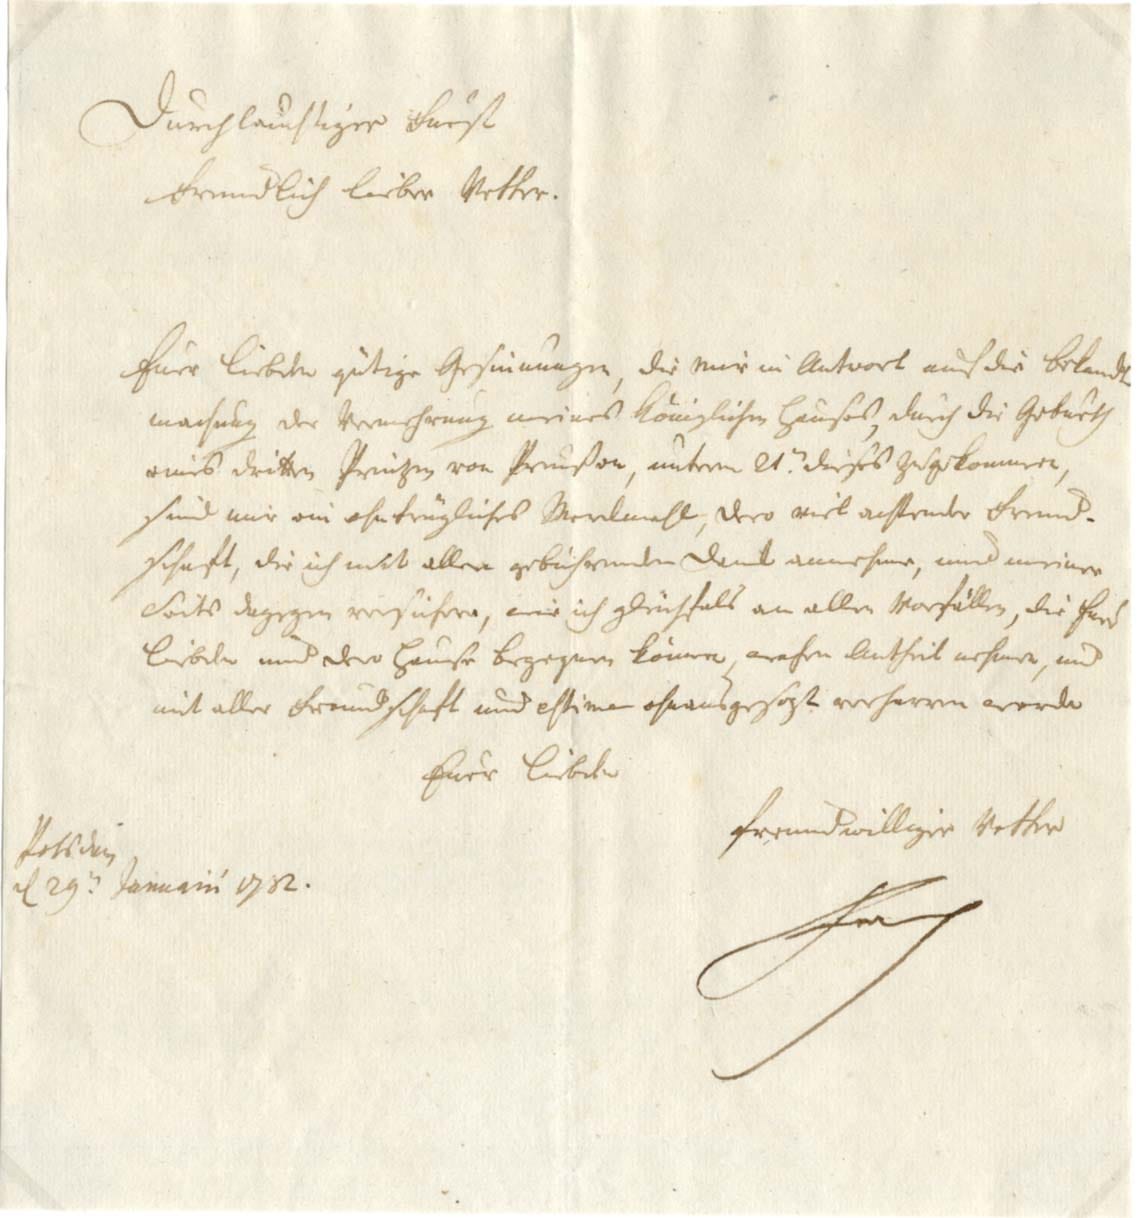 Durchlauchtiger Fürst
Freundlich lieber Vetter.
Euer Liebden gütige Gesinnungen, die mir in Antwort auf die bekandt
machung der Vermehrung meines Königlichen Hauses, durch die Geburth
eines dritten Printzen von Preußen, unterm 21ⁿ dieses zugekommen,
sind mir ein ohntrügliches Merckmahl, dero viel achtender Freund-
schaft, die ich mit allen gebührenden Danck annehme, und meiner
Seits dagegen versichere, wie ich gleichfals an allen Vorfällen, die Euer
Liebden und dero Hause begegnen können, wahren Antheil nehmen, und
mit aller Freundschaft und estime ohnausgesezt verharren werde
Euer Liebden
freundwilliger Vetter
Potsdam,
d 29ⁿ Januarii 1782.
Frch